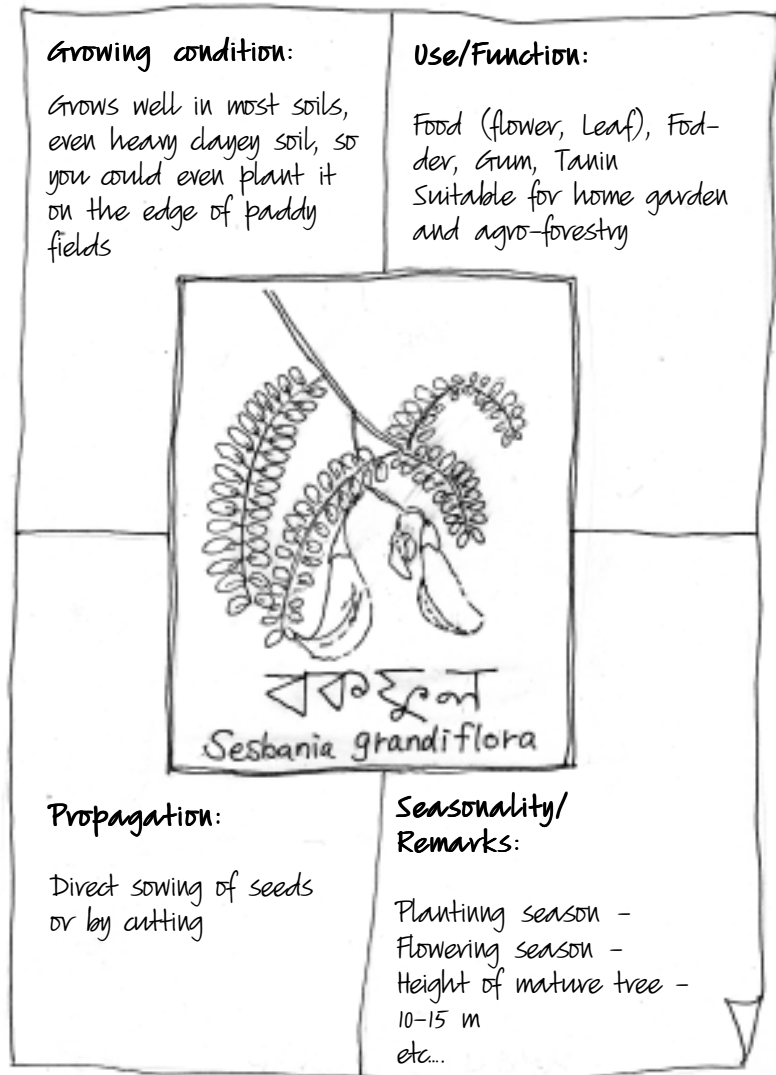 Growing condition:
Grows well in most soils,
even heavy clayey soil, so
you could even plant it
on the edge of paddy
fields
Use/Function:
Food (flower, Leaf), Fod-
der, Gum, Tanin
Suitable for home garden
and agro-forestry
বকফুল
Sesbania grandiflora
Propagation:
Direct sowing of seeds
or by cutting
Seasonality/
Remarks:
Plantinng season -
Flowering season -
Height of mature tree -
10-15 m
etc....